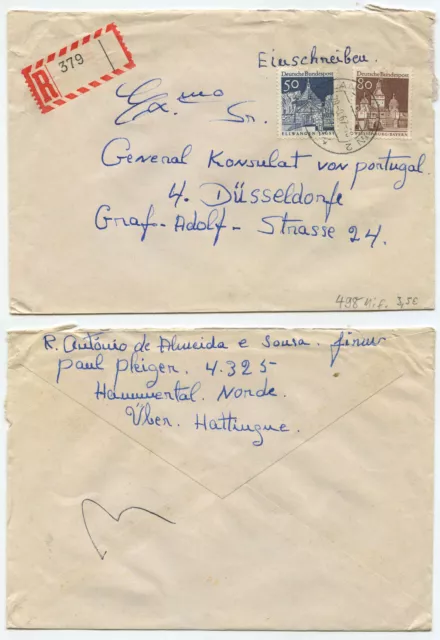 R 379
Einschreiben.
Deutsche Bundespost
50
ELLWANGEN/JAGST
Deutsche Bundespost
80
WEISSENBURG/BAYERN
Exmo Sr.
General Konsulat von portugal.
4. Düsseldorfe
Graf-Adolf-Strasse 24.
498 Mif. 3,5E
R. António de Almeida e Sousa. firma
paul pleiger. 4.325
Hammertal. Norde.
Über. Hattingue.